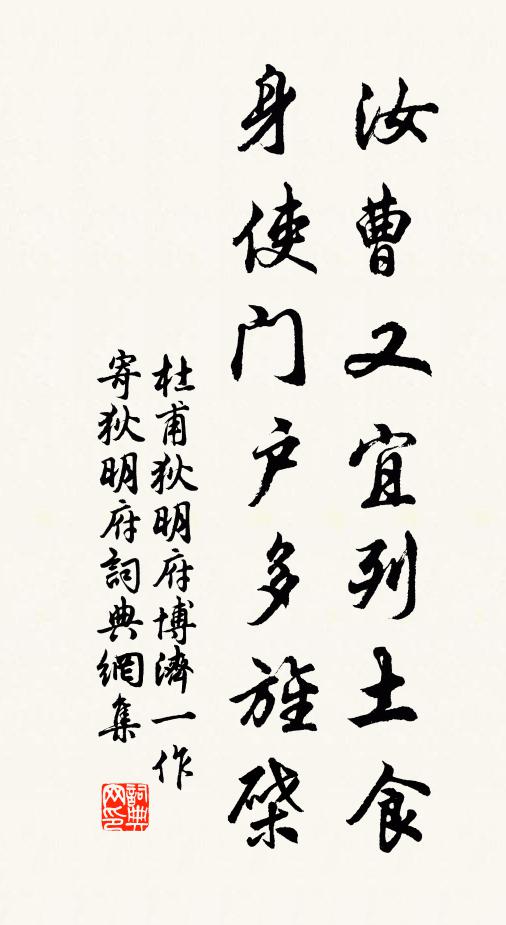 汝曹又宜列土食
身使门户多旌棨
杜甫狄明府博濟一作
寄狄明府詞典網集
詞典
网印